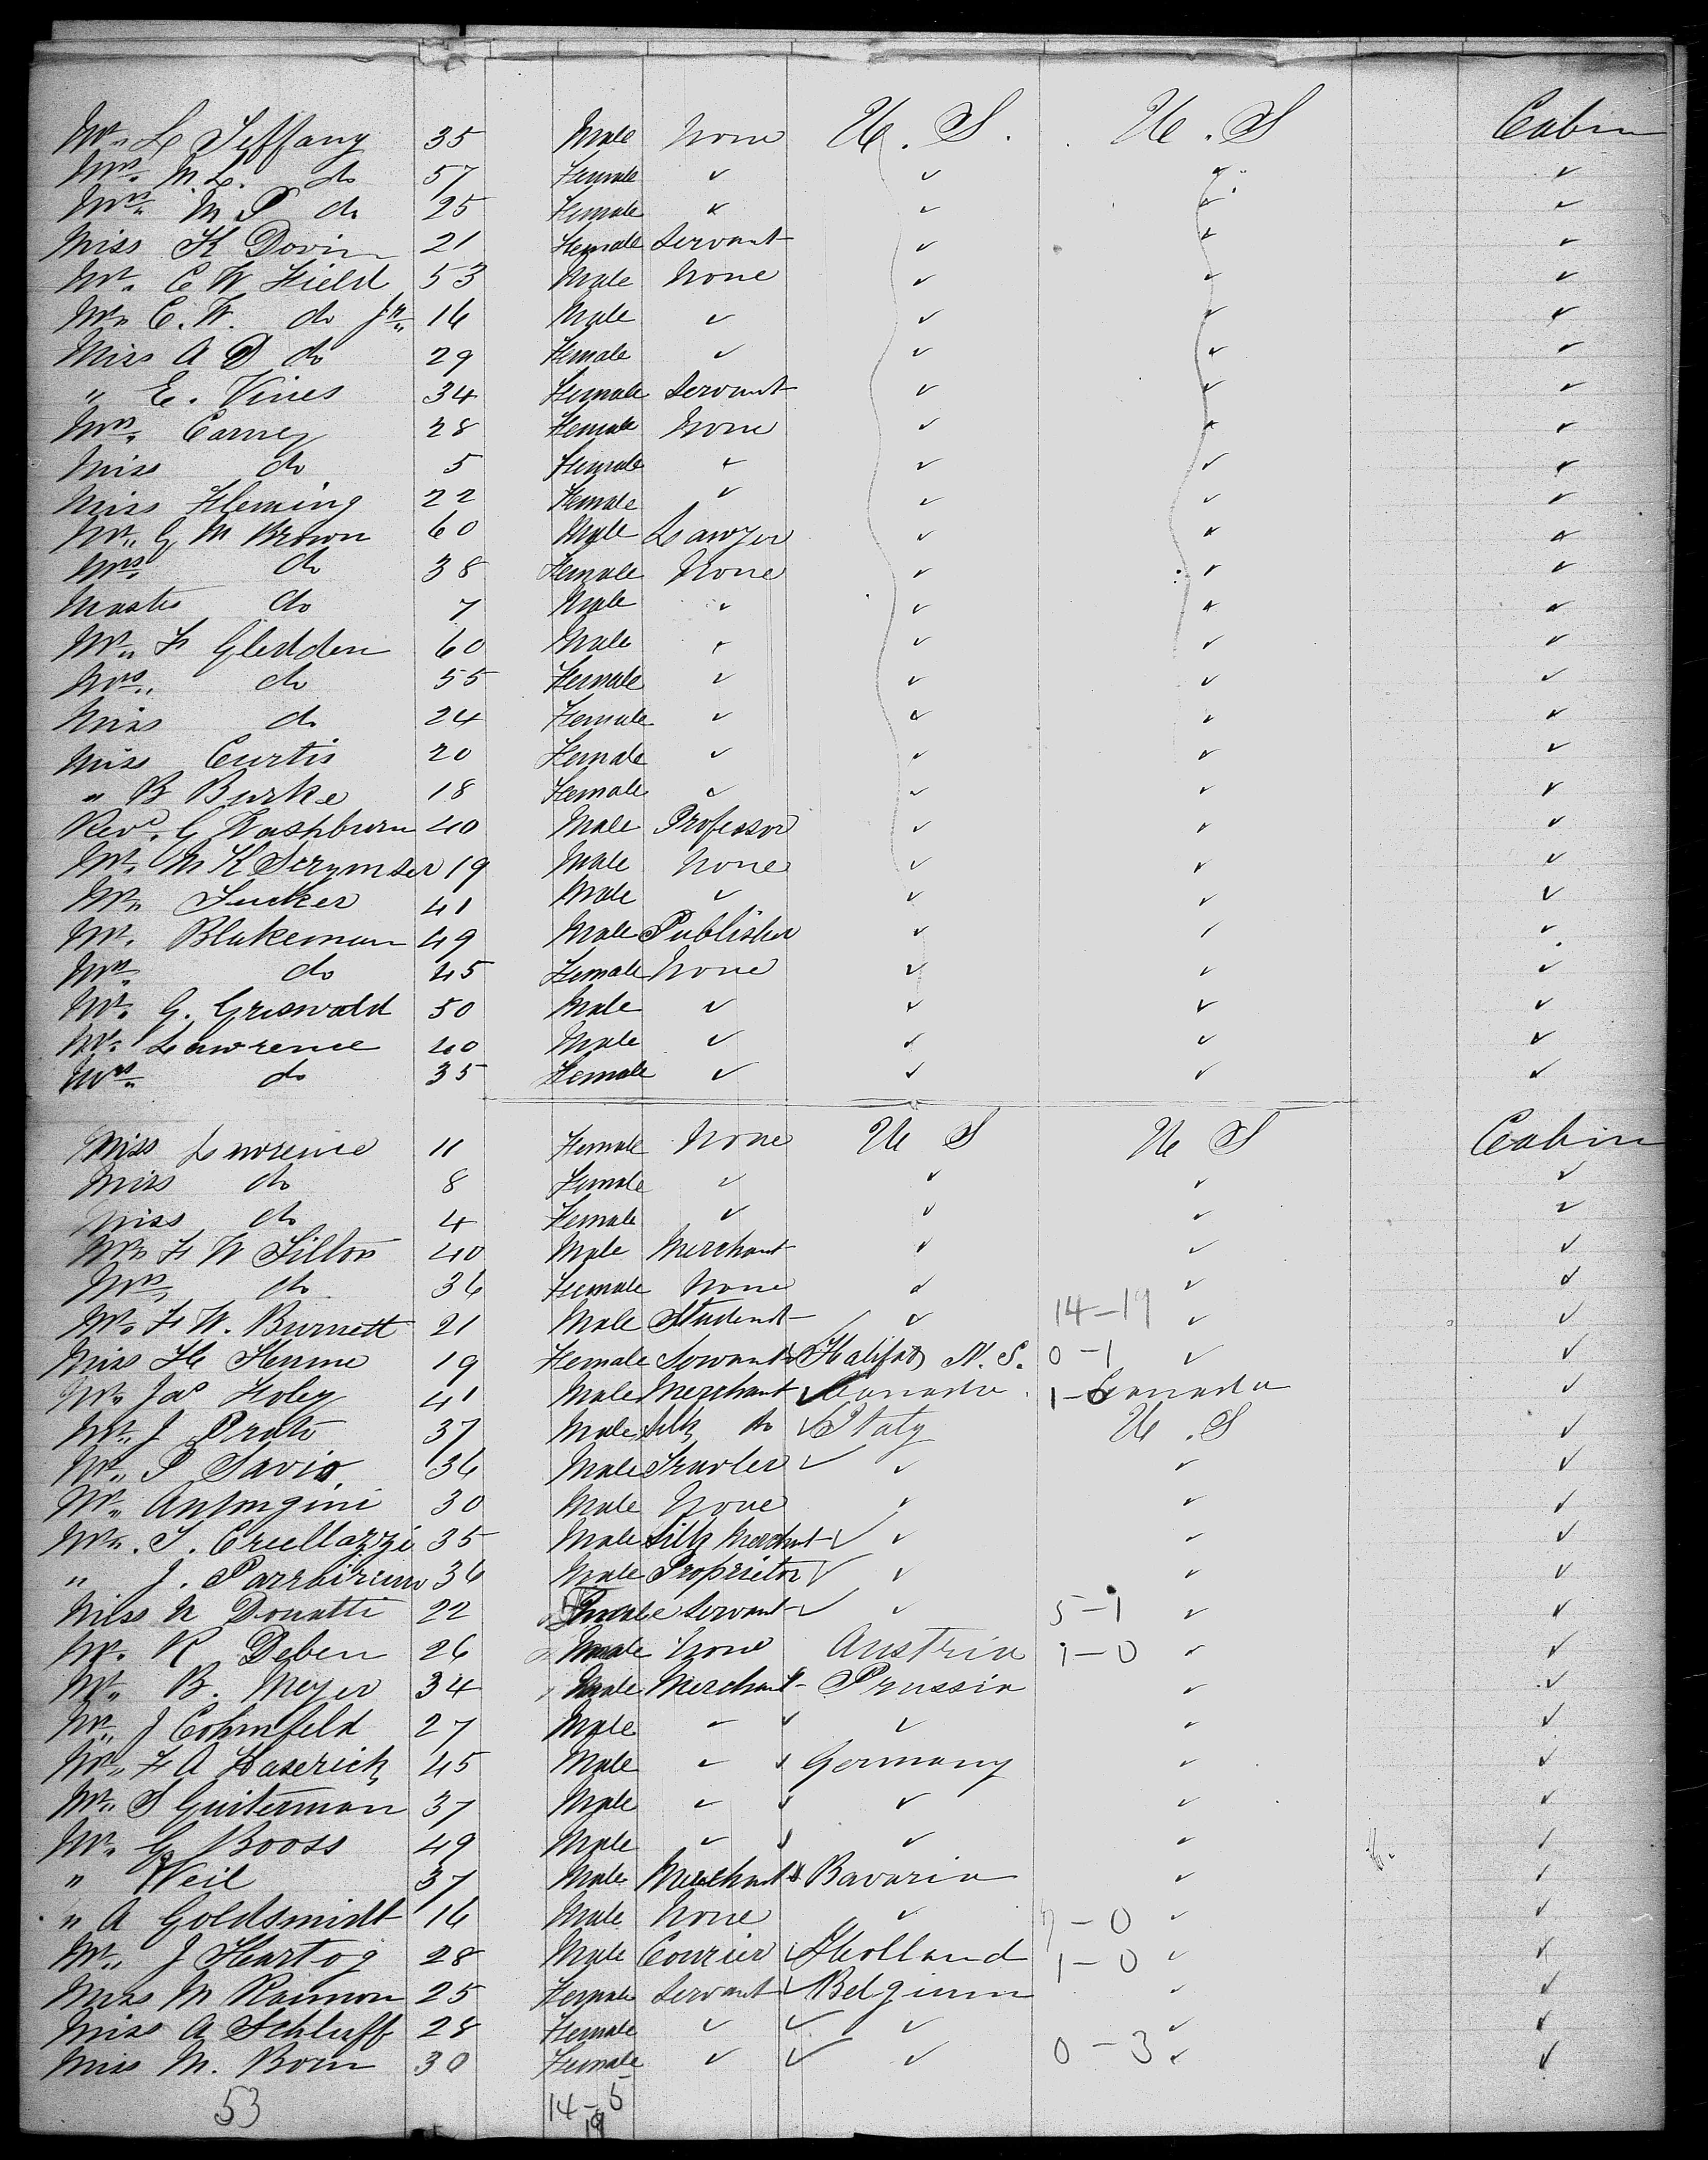 Mr. L Teffany 35 Male None U. S. U. S Cabin
Mrs. M. L. do 57 Female ✓ ✓ ✓ ✓
Mrs. M P do 25 Female ✓ ✓ ✓ ✓
Miss K 21 Female Servant ✓ ✓ ✓
Mr. C W Field 53 Male None ✓ ✓ ✓
Mr. C. W. do Jr. 16 Male ✓ ✓ ✓ ✓
Miss A D do 29 Female ✓ ✓ ✓ ✓
" E. Vines 34 Female Servant ✓ ✓ ✓
Mrs. Carney 28 Female None ✓ ✓ ✓
Miss do 5 Female ✓ ✓ ✓ ✓
Miss Fleming 22 Female ✓ ✓ ✓ ✓
Mr. G M Brown 60 Male Lawyer ✓ ✓ ✓
Mrs. do 38 Female None ✓ ✓ ✓
Master do 7 Male ✓ ✓ ✓ ✓
Mr. F Gledden 60 Male ✓ ✓ ✓ ✓
Mrs. do 55 Female ✓ ✓ ✓ ✓
Miss do 24 Female ✓ ✓ ✓ ✓
Miss Curtis 20 Female ✓ ✓ ✓ ✓
" B Burke 18 Female ✓ ✓ ✓ ✓
Revd. G Washburn 40 Male Professor ✓ ✓ ✓
Mr. M K Scrymser 19 Male None ✓ ✓ ✓
Mr. Tucker 41 Male ✓ ✓ ✓ ✓
Mr. Blakeman 49 Male Publisher ✓ ✓ ✓
Mrs. do 45 Female None ✓ ✓ ✓
Mr. G. Griswald 50 Male ✓ ✓ ✓ ✓
Mr. Lawrence 40 Male ✓ ✓ ✓ ✓
Mrs. do 35 Female ✓ ✓ ✓ ✓
Miss Lawrence 11 Female None U S U S Cabin
Miss do 8 Female ✓ ✓ ✓ ✓
Miss do 4 Female ✓ ✓ ✓ ✓
Mr. F W Tilton 40 Male Merchant ✓ ✓ ✓
Mrs. do 36 Female None ✓ ✓ ✓
Mr. F W. Burnett 21 Male Student ✓ 14-19 ✓ ✓
Miss H 19 Female Servant Halifax N. S. 0-1 ✓ ✓
Mr. Jas Foley 41 Male Merchant ✓ Canada 1-0 Canada ✓
Mr. J Prato 37 Male Silk do ✓ Italy U. S ✓
Mr. P Savio 36 Male Travler ✓ ✓ ✓ ✓
Mr. Antongini 30 Male None ✓ ✓ ✓
Mr. T. 35 Male Silk Merchant ✓ ✓ ✓ ✓
" J. 36 Male Proprietor ✓ ✓ ✓ ✓
Miss N Donatti 22 Female Servant ✓ ✓ 5-1 ✓ ✓
Mr. R Deben 26 Male None Austria 1-0 ✓ ✓
Mr. B. Meyer 34 Male Merchant Prussia ✓ ✓
Mr. J Cohnfeld 27 Male ✓ ✓ ✓ ✓ ✓
Mr. F A Haserick 45 Male ✓ ✓ Germany ✓ ✓
Mr. S Guiterman 37 Male ✓ ✓ ✓ ✓ ✓
Mr. G Booss 49 Male ✓ ✓ ✓ ✓ ✓
" Weil 37 Male Merchant Bavaria ✓ ✓
" A Goldsmidt 16 Male None ✓ 7-0 ✓ ✓
Mr. J Hartog 28 Male Courier ✓ Holland 1-0 ✓ ✓
Miss M Raimon 25 Female Servant ✓ Belgium ✓ ✓
Miss A Schluff 28 Female ✓ ✓ ✓ ✓ ✓
Miss M. Born 30 Female ✓ ✓ ✓ 0-3 ✓ ✓
53 14-5
19